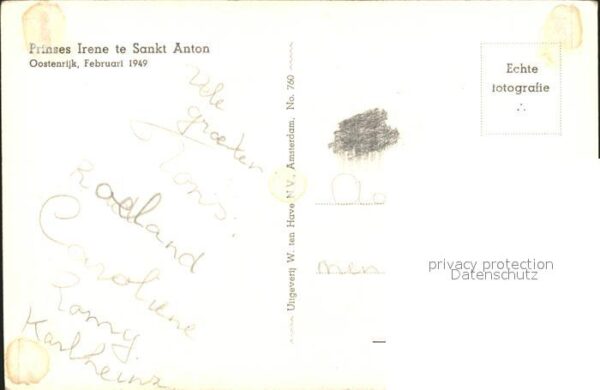 Prinses Irene te Sankt Anton
Oostenrijk, Februari 1949
Vele
groeten
Roelland
Caroliene
Romy.
Karlheinz
Uitgeverij W. ten Have N.V., Amsterdam, No. 760
Echte
fotografie
men
privacy protection
Datenschutz